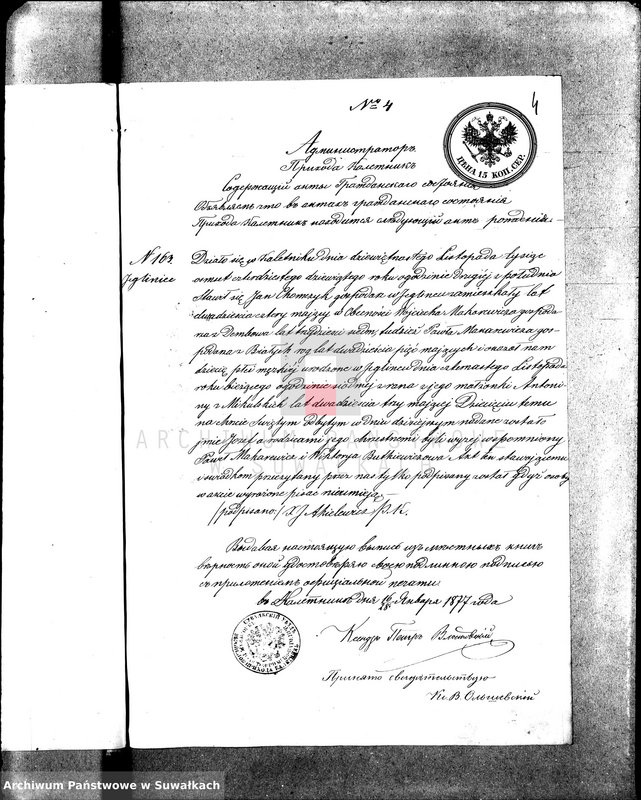 № 4
4
ЦѢНА 15 КОП. СЕР.
Администраторъ
Прихода Калетникъ
Содержащій акты Гражданскаго состоянія
Объявляетъ что в актахъ гражданскаго состоянія
Прихода Калетникъ находится слѣдующій актъ рожденія:—
N 163
Jeglińce
Działo się w Kaletniku dnia dziewiętnastego Listopada tysiąc
osmset czterdziestego dziewiątego roku o godzinie drugiej z południa
Stawił się Jan Chomczyk gospodarz w Jeglińcu zamieszkały lat
dwadzieścia cztery mający w Obecności Wojciecha Makarewicza gospoda-
rza z Dembowa lat trzydzieści siedm, tudzież Pawła Makarewicza gos-
podarza z Białych rog lat dwadzieścia pięć mających i okazał nam
dziecię płci męzkiej urodzone w Jeglińcu dnia Listopada
roku bieżącego o godzinie siódmej z rana z jego małżonki Antoni-
ny z Mikulskich lat dwadzieścia trzy mającej Dziecięciu temu
na chrzcie Świętym odbytym w dniu dzisiejszym nadane zostało
imie Józef a rodzicami jego chrzestnemi byli wyżej wspomniony
Paweł Makarewicz i Wiktorya Butkiewiczowa Akt ten stawającemu
i świadkom przeczytany przez nas tylko podpisany został gdyż osoby
w akcie wyrażone pisać nieumieją.—
/podpisano:/ X J Akielewicz P. K.
Выдавая настоящую выпись изъ мѣстныхъ книгъ
вѣрность оной удостовѣряю своею подлинною подписью
съ приложеніемъ оффиціальной печати.
въ Калетникъ дня 16/28 Января 1877 года
Ксендзъ Петръ
Принято свидѣтельствую
Кс. В. Ольшевскій
ARCHIWUM PAŃSTWOWE
W SUWAŁKACH
Archiwum Państwowe w Suwałkach